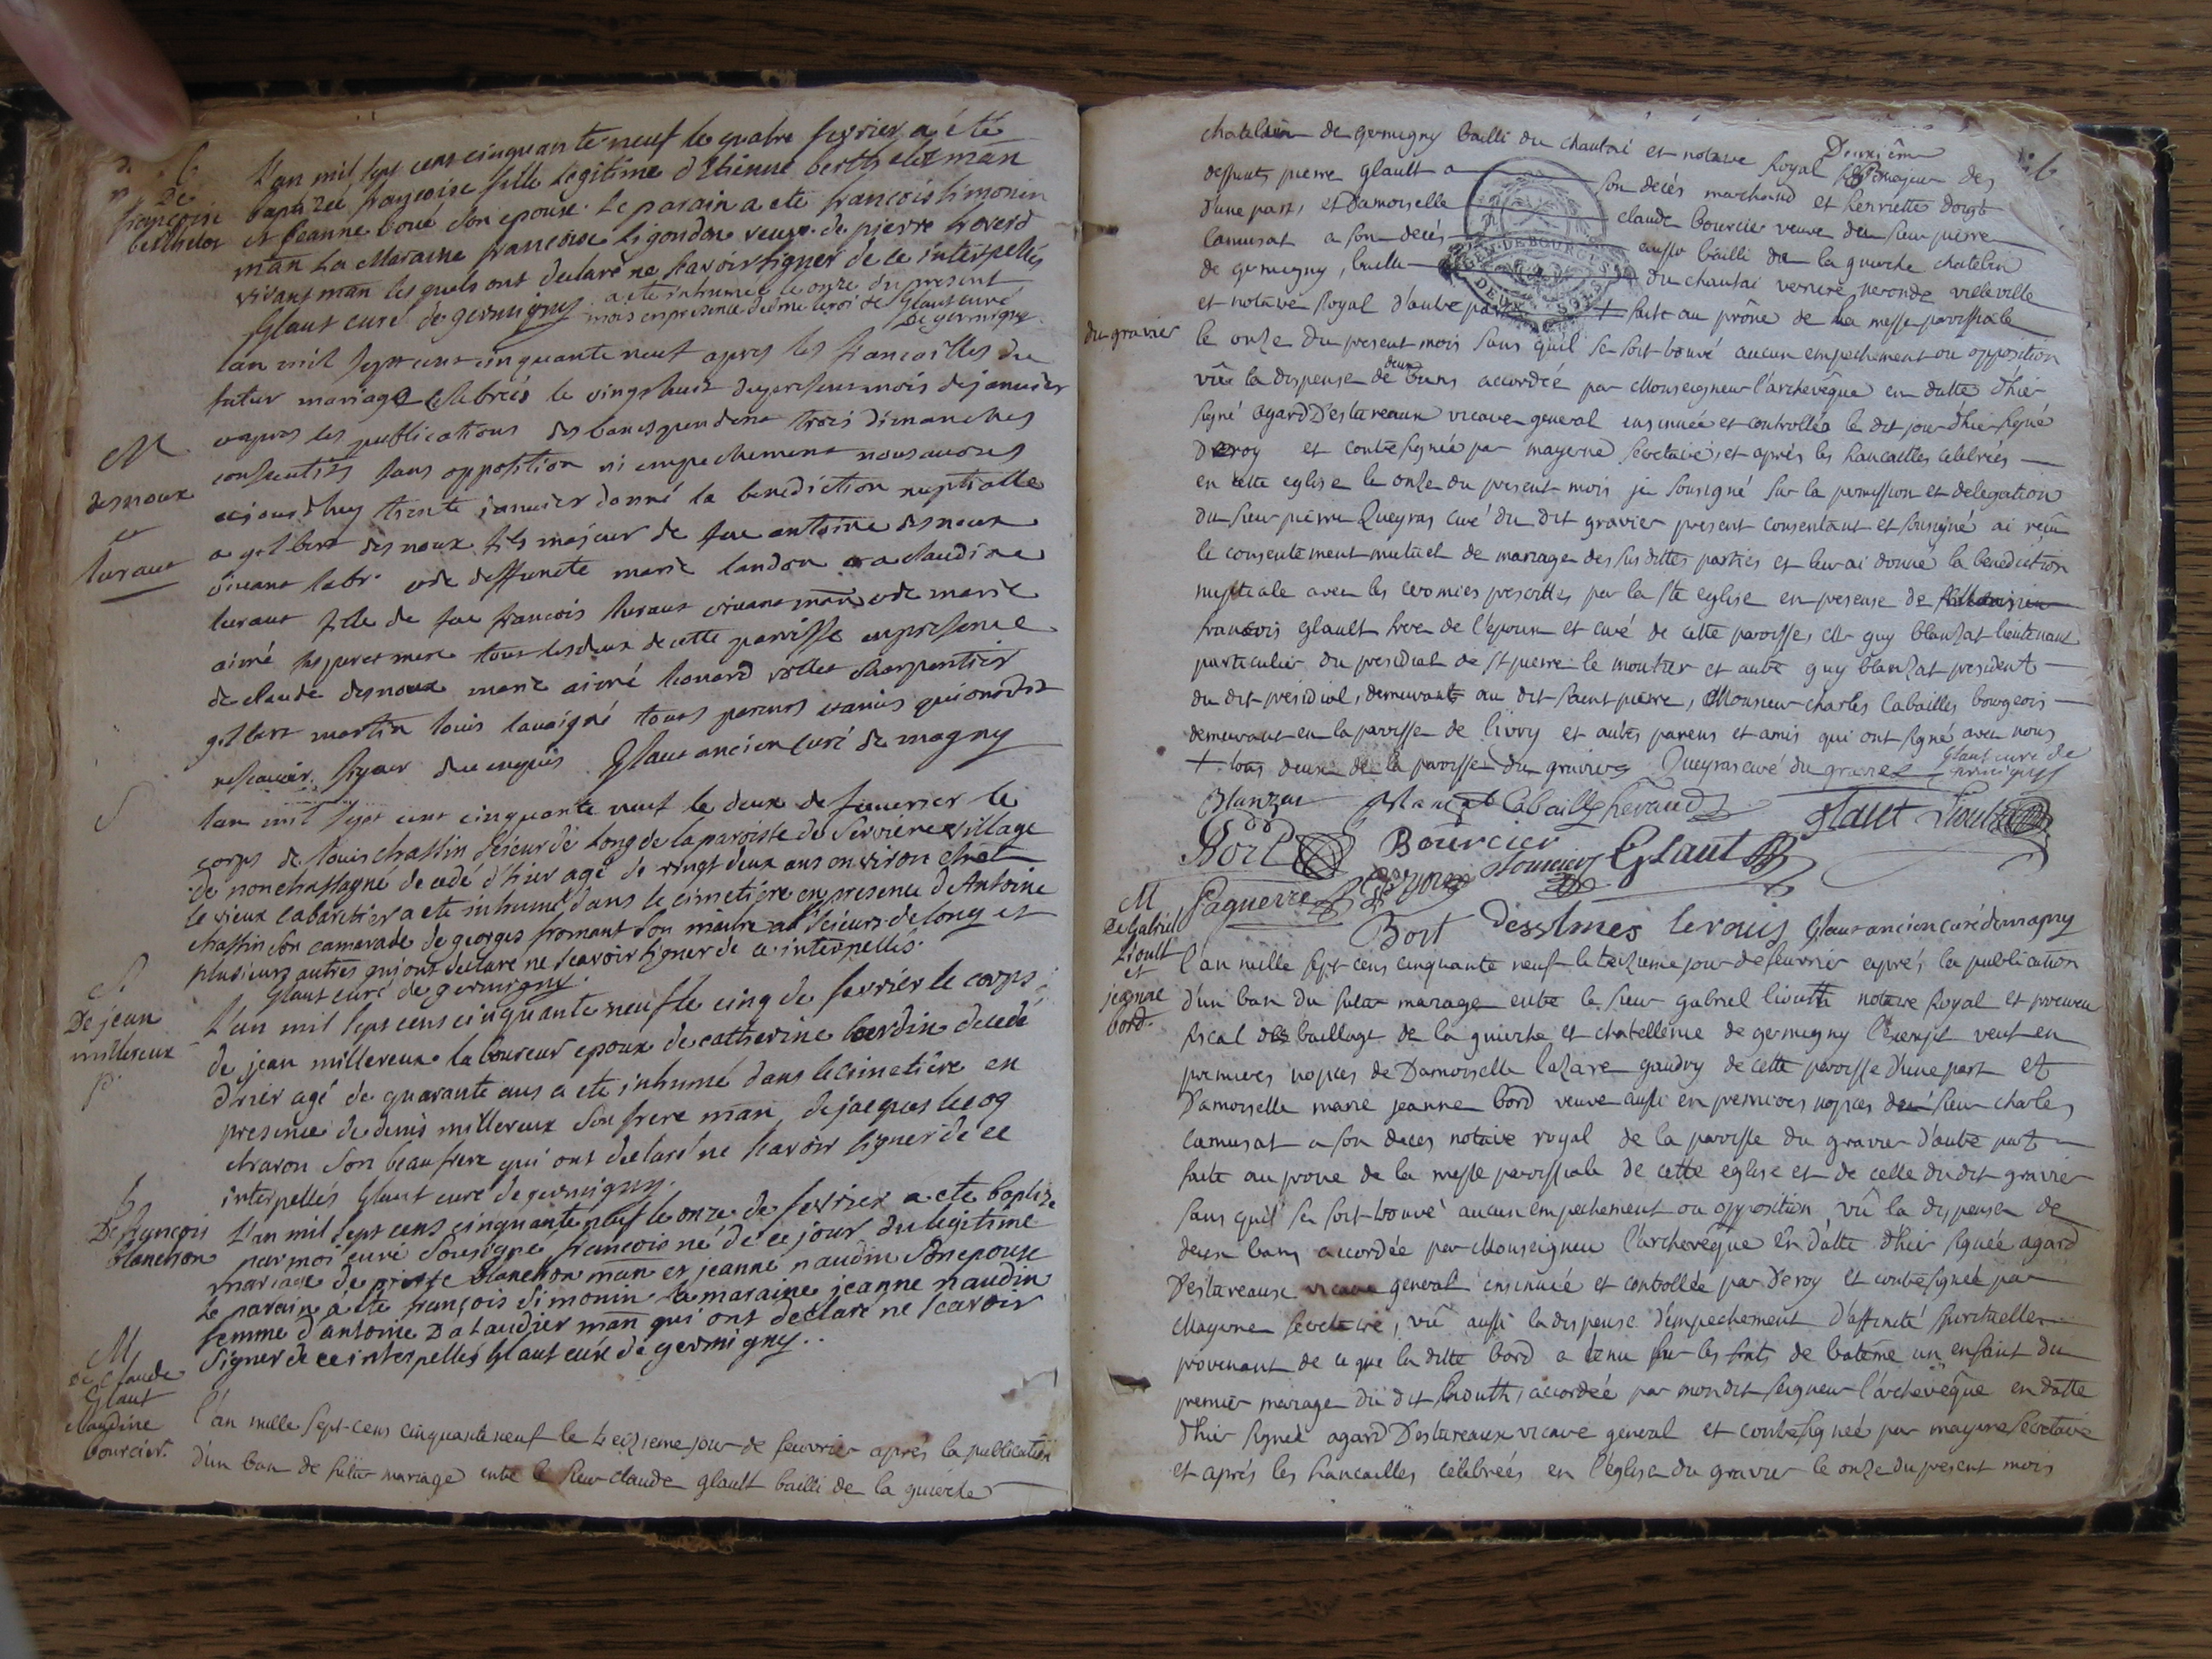 De
françoise
berthelot
L'an mil sept cens cinquante neuf le quatre fevrier a été
baptizeé françoise fille legitime d'Etienne berthelot man
et jeanne boué son epouse. Le parain a ete francois simonin
man La Maraine francoise ligondon veuve de pierre
vivant man lesquels ont declaré ne scavoir signer de ce interpellés
Glaut curé de germigny
a ete inhumée le onze du present
mois en presence deime leroi de Glaut curé
de germigny
M
desnoux
et
luraut
lan mil sept cent cinquante neuf apres les fiancailles du
futur mariage celebreés le vingt huit du present mois de janvier
et apres les publications des bancs pendent trois dimanches
consecutifs sans opposition ni empechement nous avons
cejourdhuy trente janvier donné la benediction nuptialle
a gilbert desnoux fils majeur de feu antoine desnoux
vivant labr et de deffuncte marie landon et a claudine
luraut fille de feu francois luraut vivant man et de marie
aimé ses pere et mere tous les deux de cette paroisse en presence
de claude desnoux marie aimé leonard rollet charpentier
gilbert martin louis lavaigné tous parens et amis qui ont dit
ne scavoir signer de ce enquis Glaut ancien curé de magny
S
lan mil sept cent cinquante neuf le deux de fevrier le
corps de louis chassin scieur de long de la paroisse de Servieres village
de nonchassagné decedé d'hier agé de vingt deux ans environ chés
le vieux cabaretier a ete inhumé dans le cimetiere en presence d'Antoine
chassin son camarade de georges fromant son maitre scieurs de long et
plusieurs autres qui ont declaré ne scavoir signer de ce interpellés.
Glaut curé de germigny.
S
De jean
millereux
p.
L'an mil sept cens cinquante neuf le cinq de fevrier le corps
de jean millereux laboureur epoux de catherine bardin decedé
d'hier agé de quarante ans a ete inhumé dans le cimetiere en
presence de denis millereux son frere man, de jacques lecog
charon son beau frere qui ont declaré ne scavoir signer de ce
interpellés Glaut curé de germigny.
b
De françois
blanchon
L'an mil sept cens cinquante neuf le onze de fevrier a ete baptizé
par moi curé sousigné francois né de ce jour du legitime
mariage de pierre blanchon man et jeanne naudin son epouse
le parain a ete françois simonin la maraine jeanne naudin
femme d'antoine man qui ont declaré ne scavoir
signer de ce interpellés Glaut curé de germigny.
M
de Claude
Glaut
claudine
bourcier.
l'an mille sept-cens cinquante neuf le treizieme jour de feuvrier aprés la publication
d'un ban de futur mariage entre le sieur claude glault bailli de la guierche
chatelain de germigny bailli du chautai et notaire Royal majeur des
deffunts pierre glault a son decés marchand et henriette
d'une part, et Damoiselle claude bourcier veuve du sieur pierre
Camusat a son decés aussy bailli de la guierche chatelin
de germigny, bailli du chautai verneré neronde villeville
et notaire Royal d'autre part + faite au prône de la messe paroissiale
du gravier
le onze du present mois sans quil se soit trouvé aucun empechement ou opposition
vûe la dispense de deux bans accordée par Monseigneur l'archevêque en datte d'hier
signé agard Destureaux vicaire general insinuée et controllée le dit jour d'hier signé
Deroy et contresignée par mayerne secretaire, et aprés les fiancailles celebrées
en cette eglise le onze du present mois je sousigné sur la permission et delegation
du sieur pierre Queyras curé du dit gravier present consentant et sousigné ai reçu
le consentement mutuel de mariage des sus dittes parties et leur ai donné la benediction
nuptiale avec les ceromies prescrittes par la ste eglise en presence de
francois glault frere de l'epoux et curé de cette paroisse, Mr guy blanzat lieutenant
particulier du presidial de st pierre le moutier et autre guy blanzat president
du dit presidial, demeurants au dit saint pierre, Monsieur charles Cabailles bourgeois
demeurant en la paroisse de livry et autres parens et amis qui ont signé avec nous
+ tous deux de la paroisse du gravier Queyras curé du gravier Glaut curé de germigny
Blanzat Blanzat Cabailles heraud Glaut Lioult
Bord Bourcier Glaut
Paguerre
Bort Desslmes lerouis Glaut ancien curé de magny
M
de Gabriel
Lioult
et
jeanne
bord.
l'an mille sept-cens cinquante neuf le treizieme jour de feuvrier aprés la publication
d'un ban du futur mariage entre le sieur gabriel lioult notaire Royal et procureur
fiscal des baillage de la guierche et chatellenie de germigny l'exempt veuf en
premieres nopces de Damoiselle lazare gaudry de cette paroisse d'une part et
Damoiselle marie jeanne bord veuve aussi en premieres nopces de sieur charles
camusat a son deces notaire royal de la paroisse du gravier d'autre part
faite au prone de la messe paroissiale de cette eglise et de celle du dit gravier
sans qu'il se soit trouvé aucun empechement ou opposition vû la dispense de
deux bans accordée par Monseigneur l'archevêque en datte d'hier signée agard
Destureaux vicaire general insinuée et controllée par Deroy et contresignée par
Mayerne secretaire, vû aussi la dispense d'empechement d'affinité spirituelle
provenant de ce que la ditte bord a tenu sur les fonts de batême un enfant du
premier mariage du dit lioult, accordeé par mondit seigneur l'archevêque en datte
d'hier signée agard Destureaux vicaire general et contresignée par mayerne secretaire
et aprés les fiancailles célebreés en l'église du gravier le onze du present mois